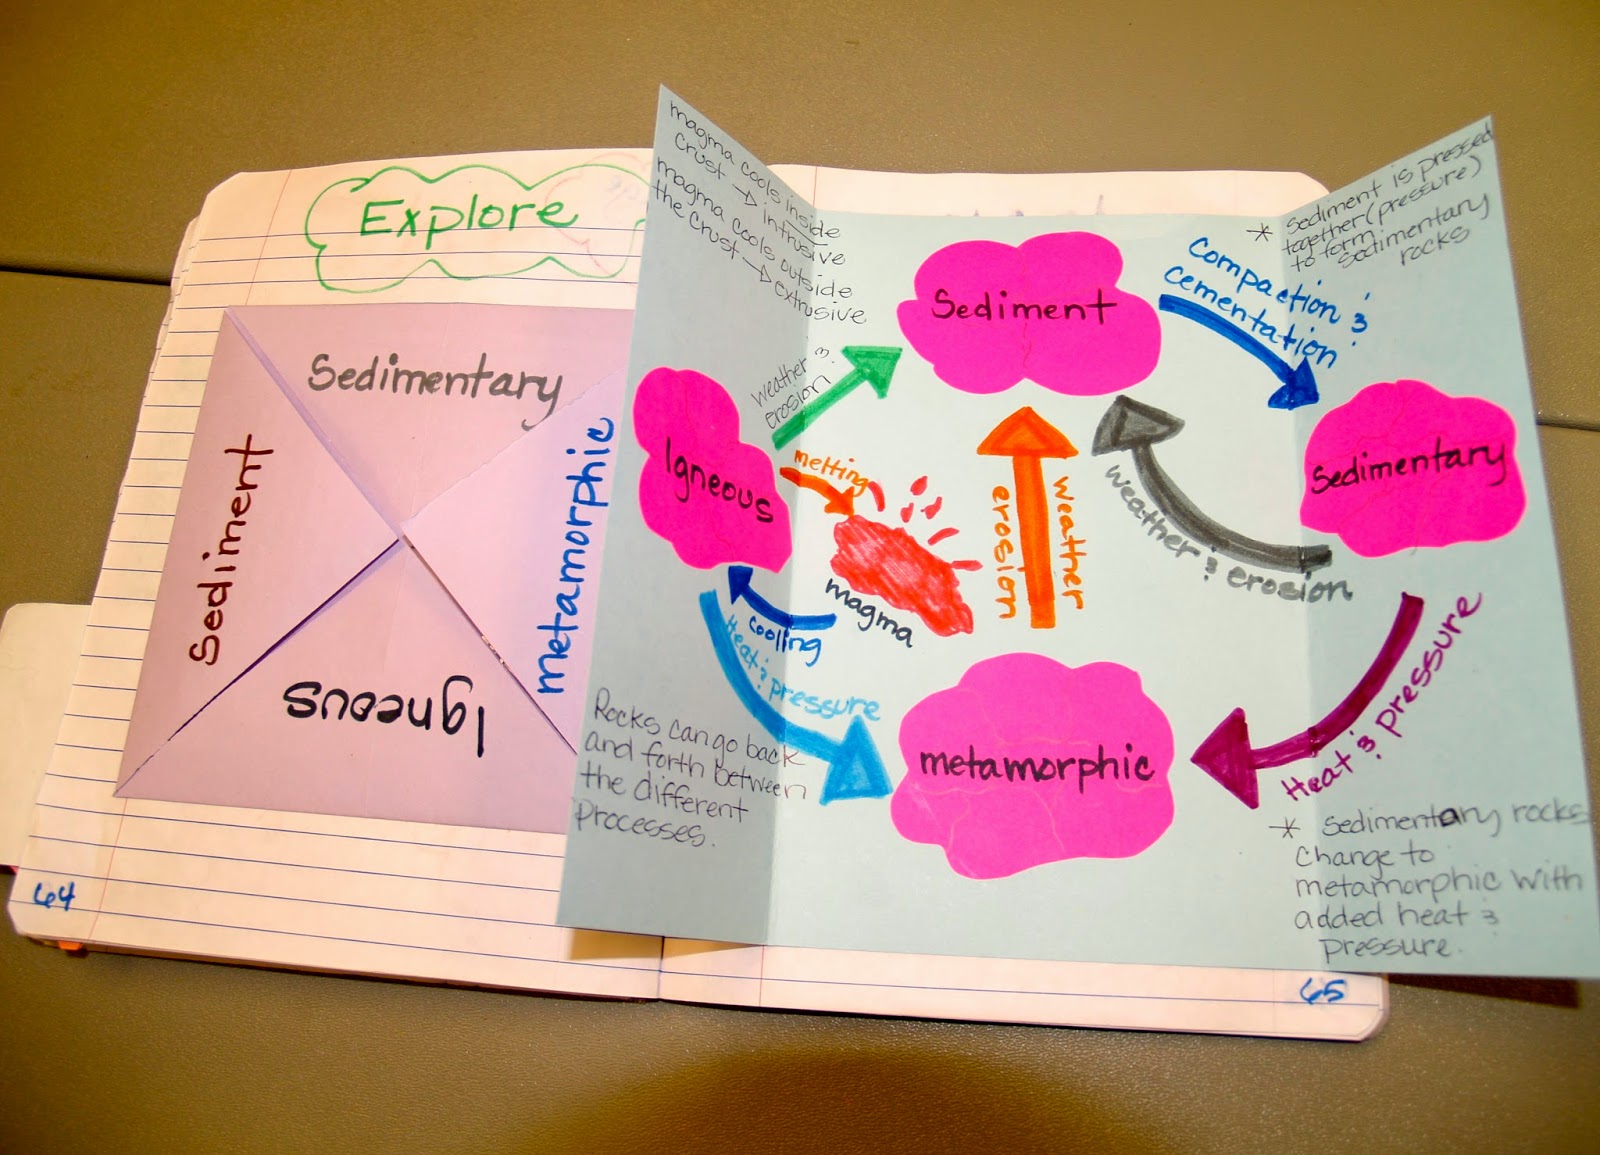 Explore
Sedimentary
Sediment
metamorphic
Igneous
64
magma cools inside
crust → intrusive
magma cools outside
the crust → extrusive
Sediment
compaction &
cementation
* Sediment is pressed
together (pressure)
to form
sedimentary
rocks
weather &
erosion
Igneous
melting
magma
cooling
Heat & pressure
weather
erosion
weather & erosion
Sedimentary
Heat & pressure
metamorphic
Rocks can go back
and forth between
the different
processes.
* Sedimentary rocks
change to
metamorphic with
added heat &
pressure.
65